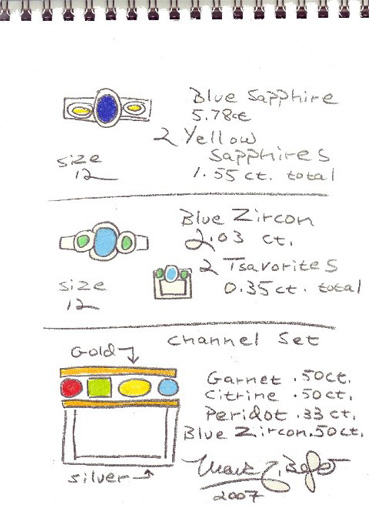 Blue Sapphire
5.78ct
2 Yellow
Sapphires
1.55 ct. total
size
12
Blue Zircon
2.03 ct.
2 Tsavorites
0.35ct. total
size
12
Channel Set
Gold
Garnet .50ct.
Citrine .50ct.
Peridot .33 ct.
Blue Zircon .50ct.
silver
2007